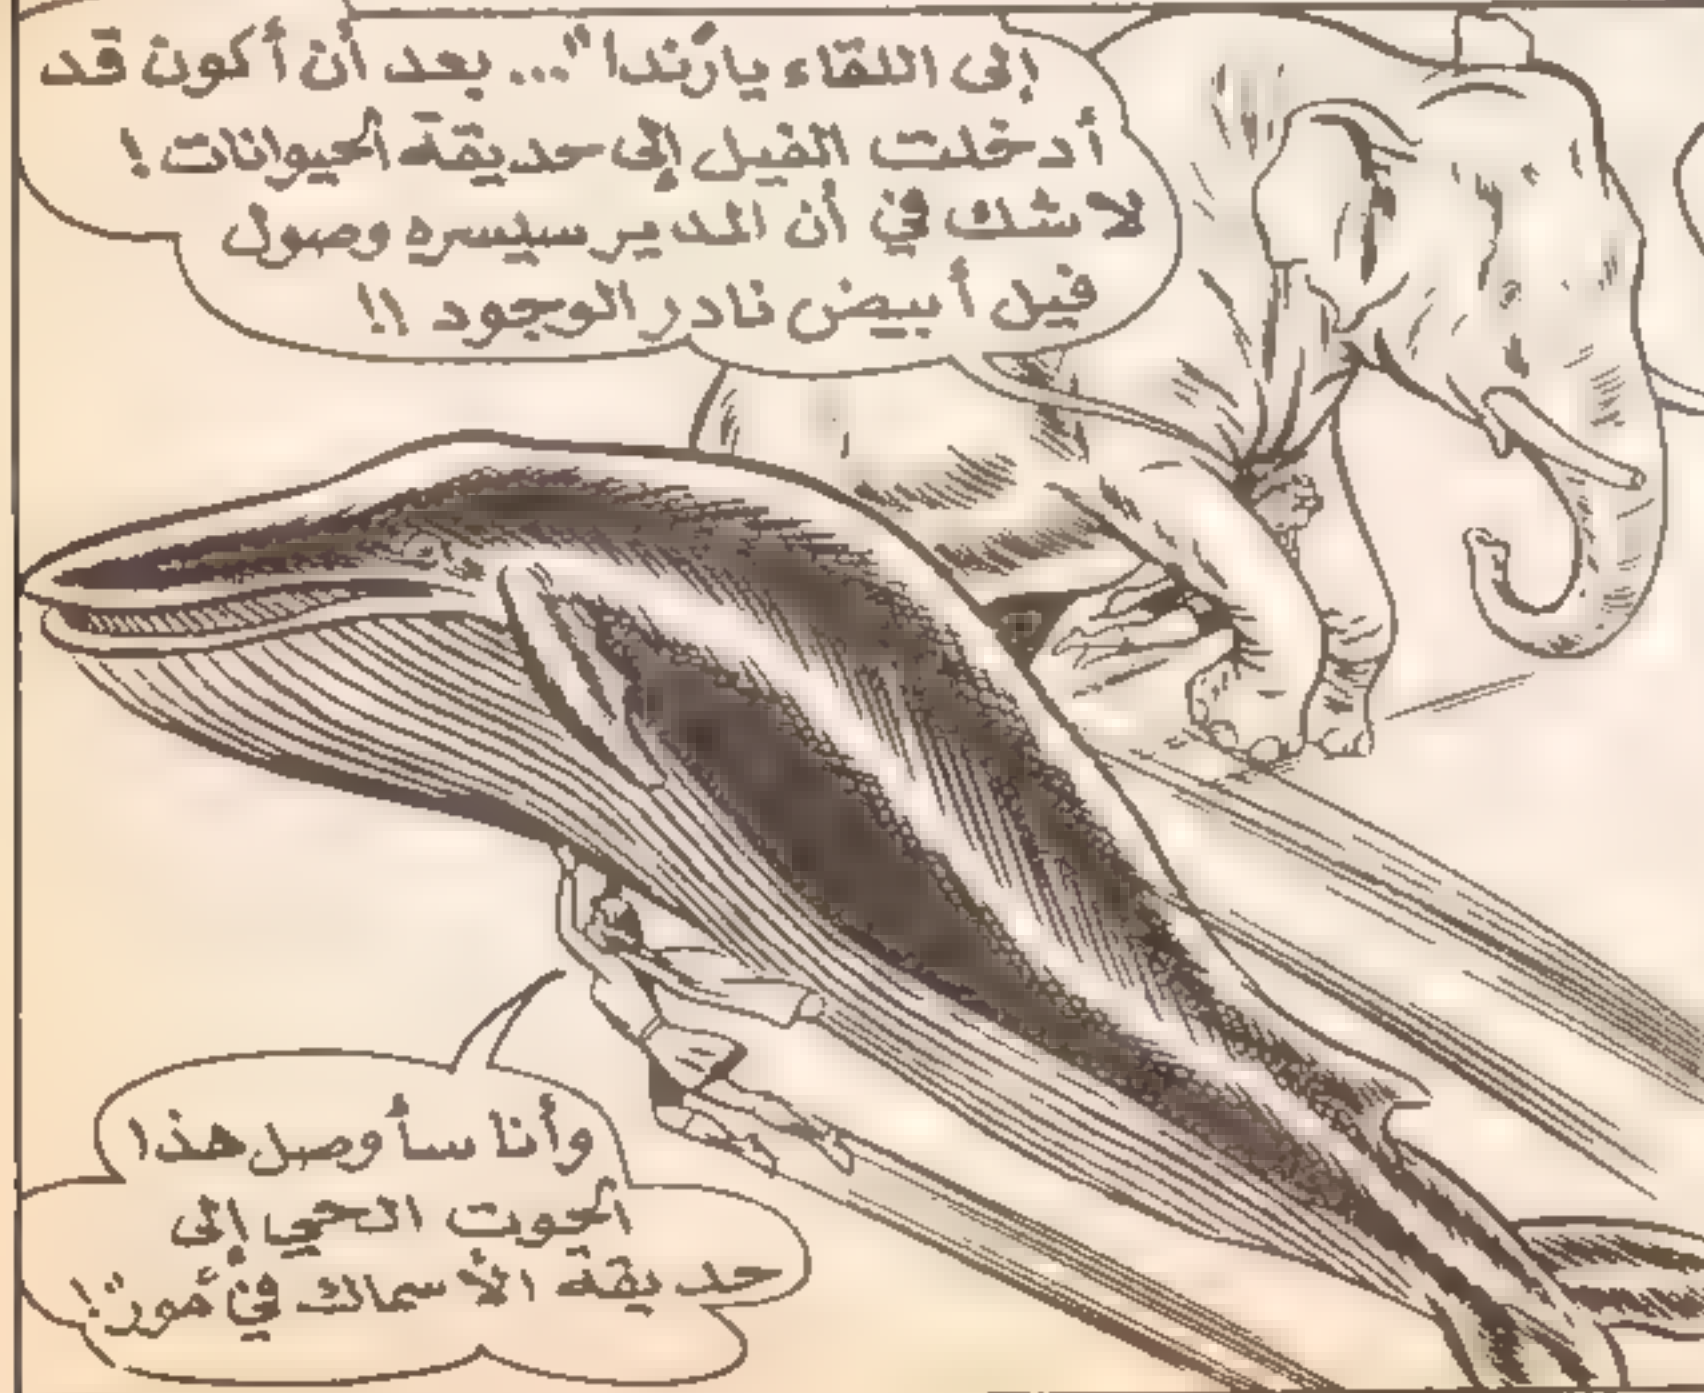 إلى اللقاء يا "رندا"... بعد أن أكون قد
أدخلت الفيل إلى حديقة الحيوانات !
لا شك في أن المدير سيسره وصول
فيل أبيض نادر الوجود !!
وأنا سأوصل هذا
الحوت الحي إلى
حديقة الأسماك في "مور"!